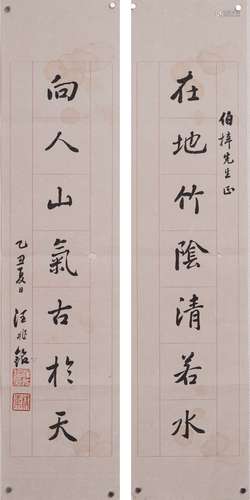 伯梓先生正
在地竹陰清若水
向人山氣古於天
乙丑夏日 汪兆銘